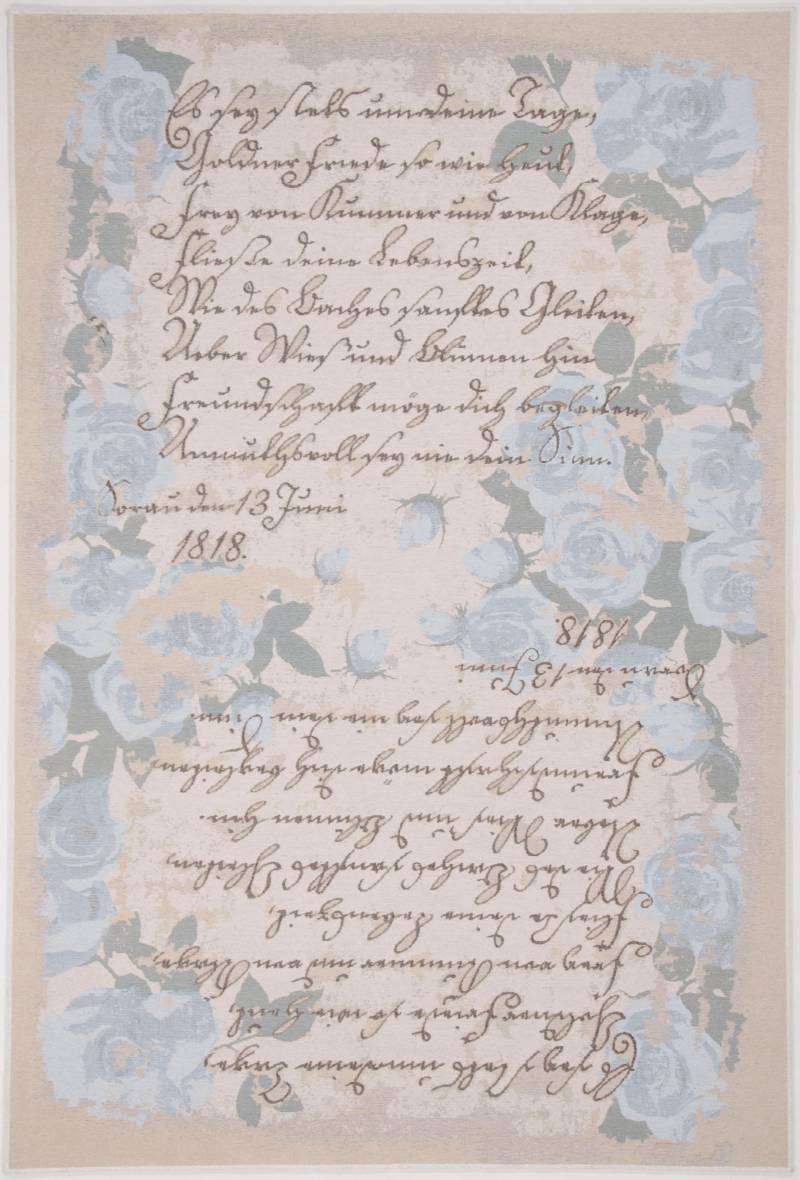 Es sey stets um deine Tage,
Goldner Friede so wie Heut,
Frey von Kummer und von Klage,
Fließe deine Lebenszeit,
Wie des Baches sanftes Gleiten,
Ueber Wies und Blumen hin
Freundschaft möge dich begleiten,
Unmuthsvoll sey nie dein Sinn.
Sorau den 13 Juni
1818.
Es sey stets um deine Tage,
Goldner Friede so wie Heut,
Frey von Kummer und von Klage,
Fließe deine Lebenszeit,
Wie des Baches sanftes Gleiten,
Ueber Wies und Blumen hin.
Freundschaft möge dich begleiten
Unmuthsvoll sey nie dein Sinn.
Sorau den 13 Juni
1818.